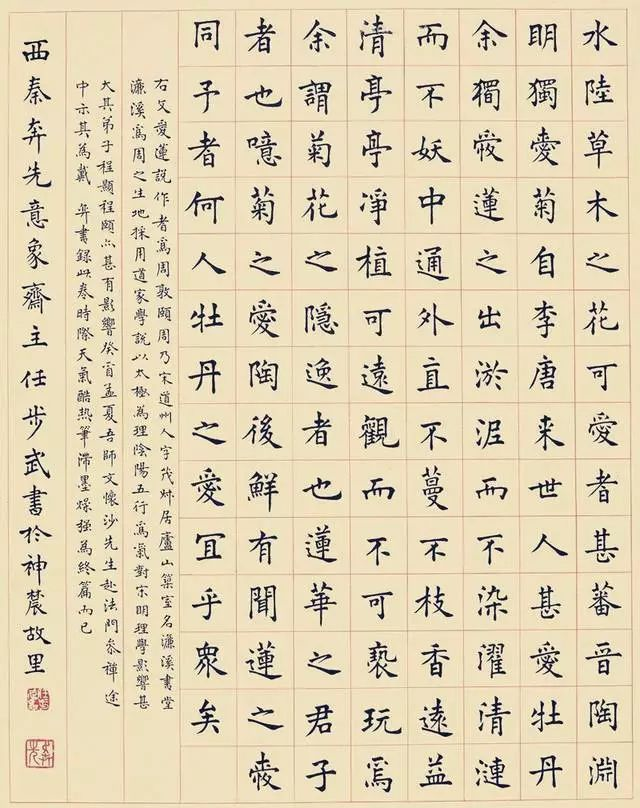 水陸草木之花可愛者甚蕃晉陶淵
明獨愛菊自李唐来世人甚愛牡丹
余獨愛蓮之出淤泥而不染濯清漣
而不妖中通外直不蔓不枝香遠益
清亭亭淨植可遠觀而不可褻玩焉
余謂菊花之隱逸者也蓮華之君子
者也噫菊之愛陶後鮮有聞蓮之愛
同予者何人牡丹之愛冝乎眾矣
右文愛蓮說作者爲周敦頤周乃宋道州人字茂叔居廬山築室名濂溪書堂
濂溪爲周之生地採用道家學說以太極爲理陰陽五行爲氣對宋明理學影響甚
大其弟子程顥程頤亦甚有影響癸酉孟夏吾師文懷沙先生赴法門參禪途
中示其為 書錄此奉時際天氣酷熱筆滯墨燥强為終篇而已
西秦弇先意象齋主任步武書於神農故里